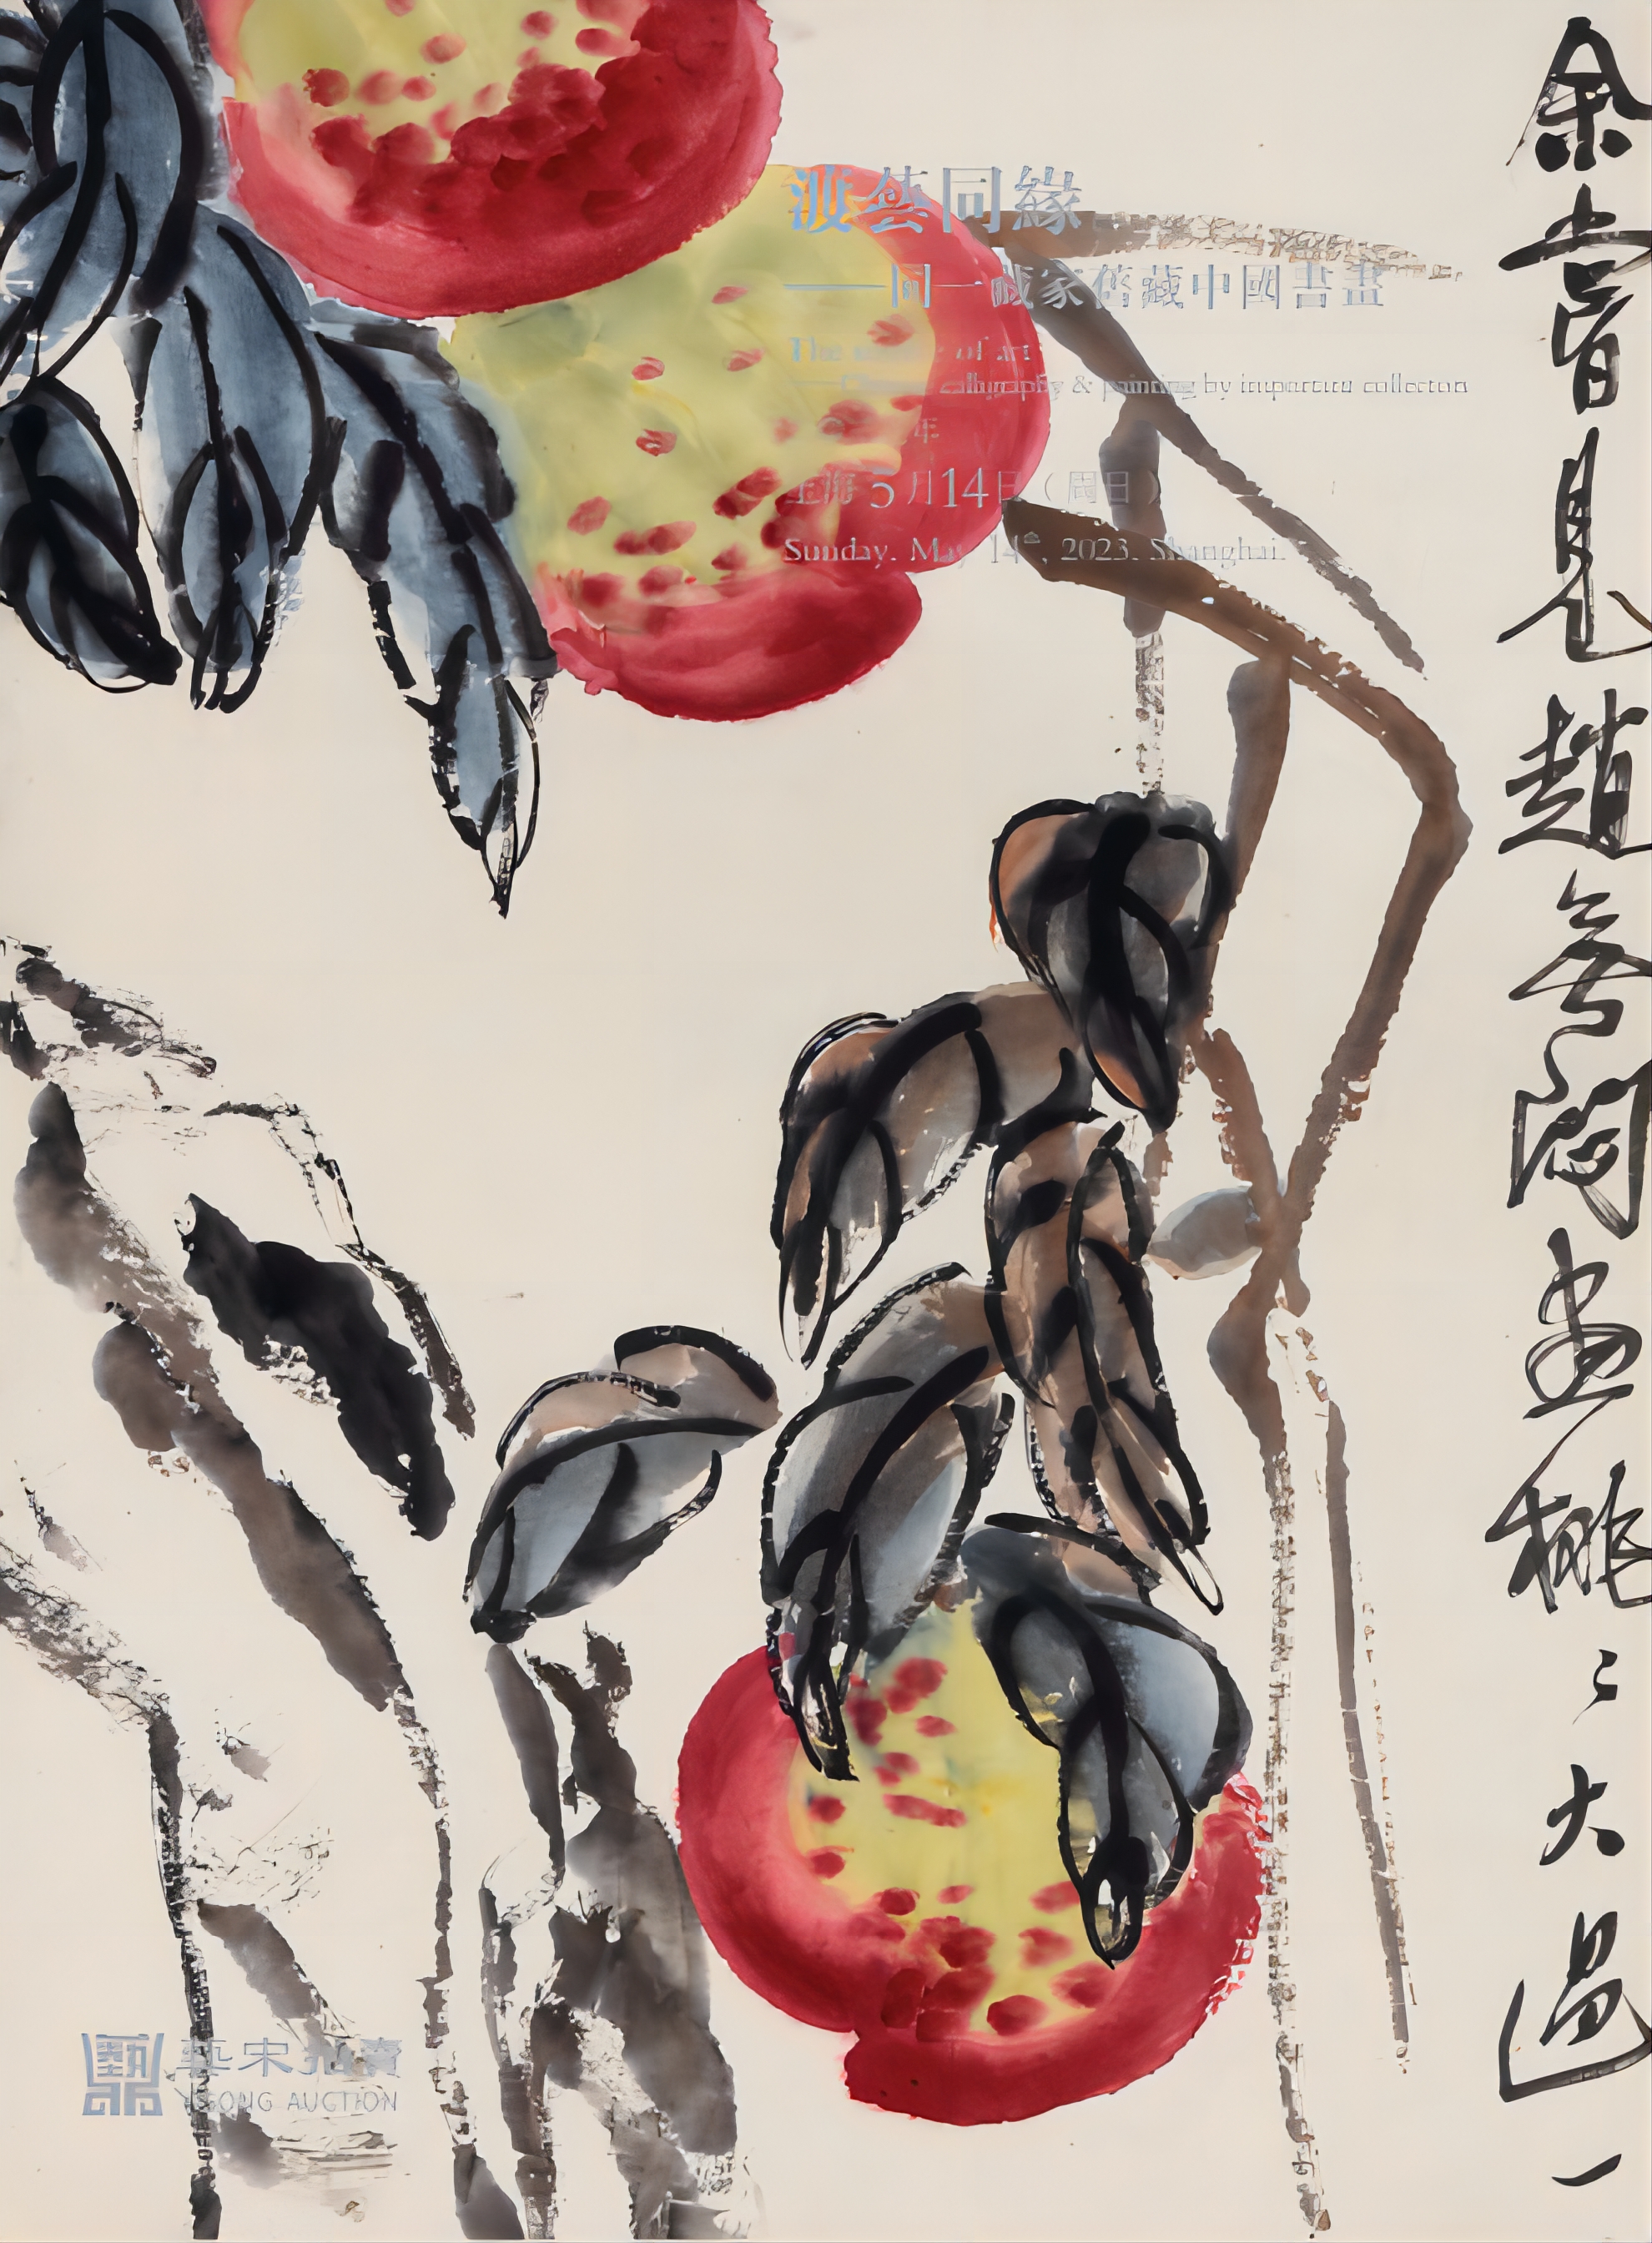 渡藝同緣
——同一藏家舊藏中國書畫
The of art
calligraphy & painting by important collectors
年
上海5月14日(周日)
Sunday. May 14th, 2023. Shanghai.
余嘗見趙無悶畫桃〻大過一
藝宋拍賣
YISONG AUCTION